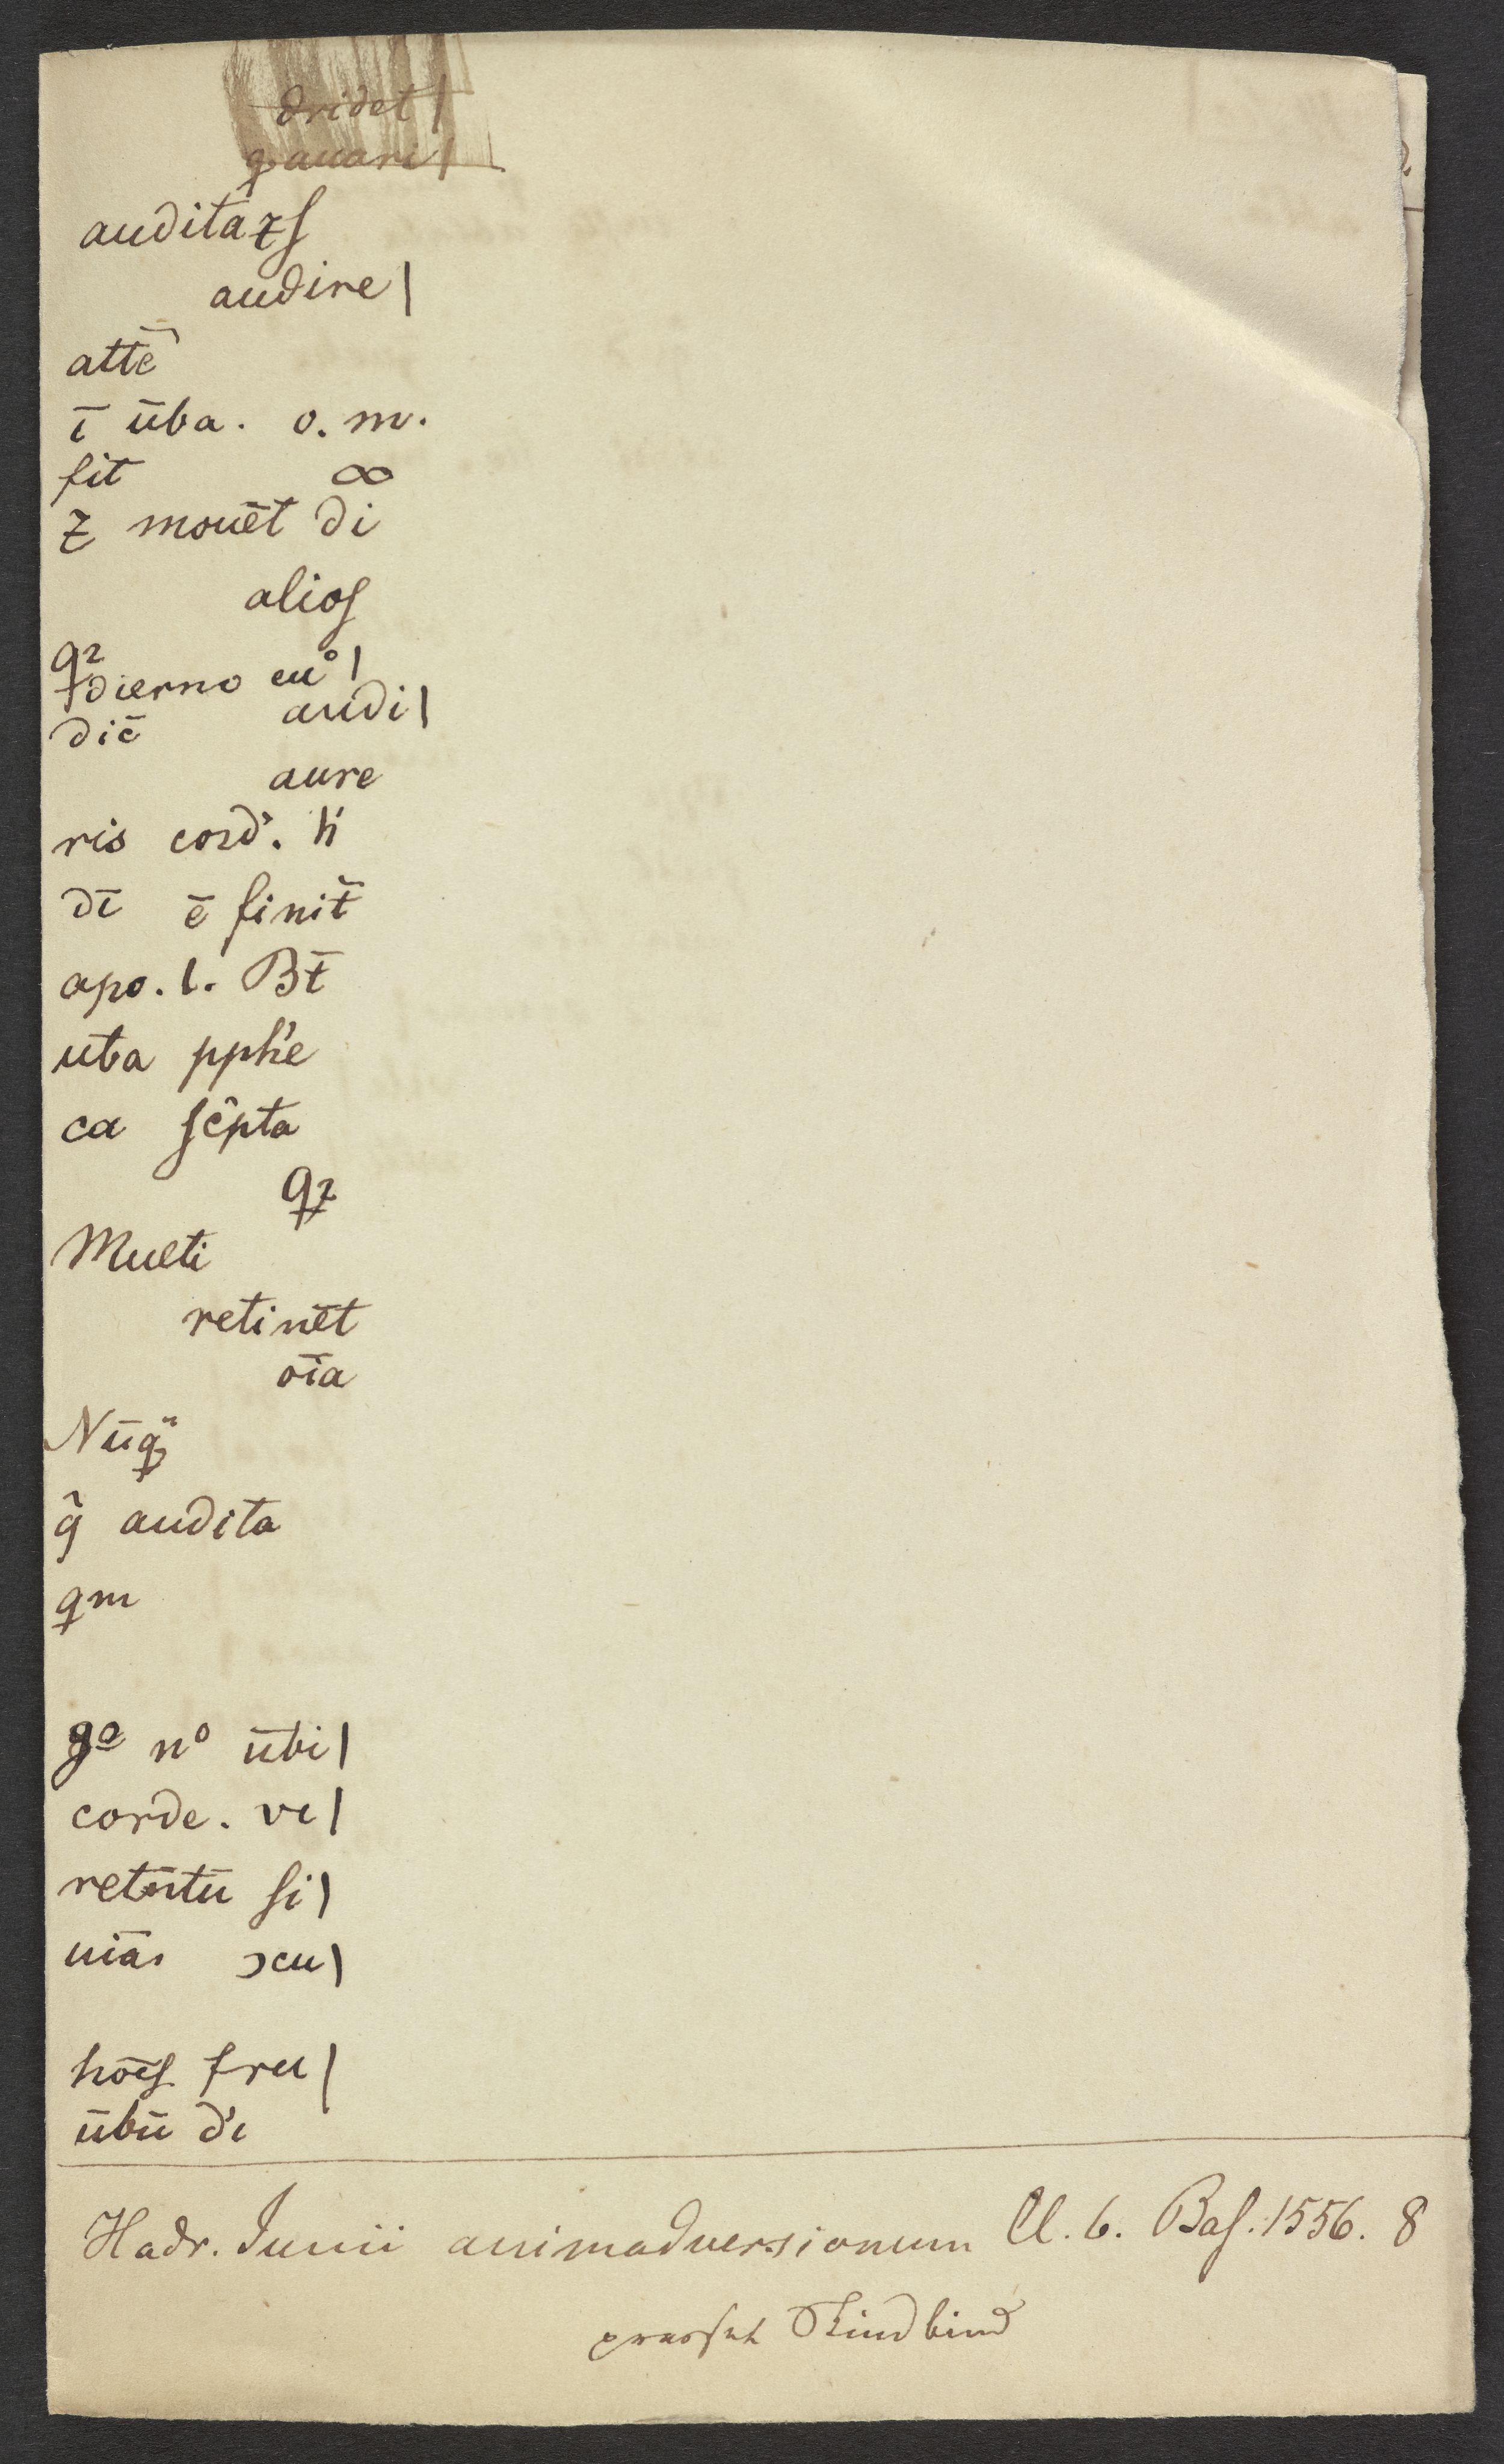 dridet |
auditaꝫſ
audire |
attē
ī ūba. o. m.
fit ∞
Z mouēt di
alioſ
qꝛ
dierno eu° |
dic̄ audi |
aure
ris cord'. h̄
dī ē finit̄
apo. l. Bt̄
uba pph'e
ca ſc̄pta
qꝫ
Multi
retinēt
oīa
Nūq̄
q̄ audita
qm
gº nº ūbi |
corde. ve |
retn̄tū ſi |
uīa ɔcu |
hōeſ fru |
ūbū d'i
Hadr. Junii animaduersionum ll. 6. Baſ. 1556. 8